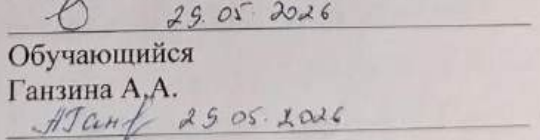 29.05.2026
Обучающийся
Ганзина А.А.
29.05.2026